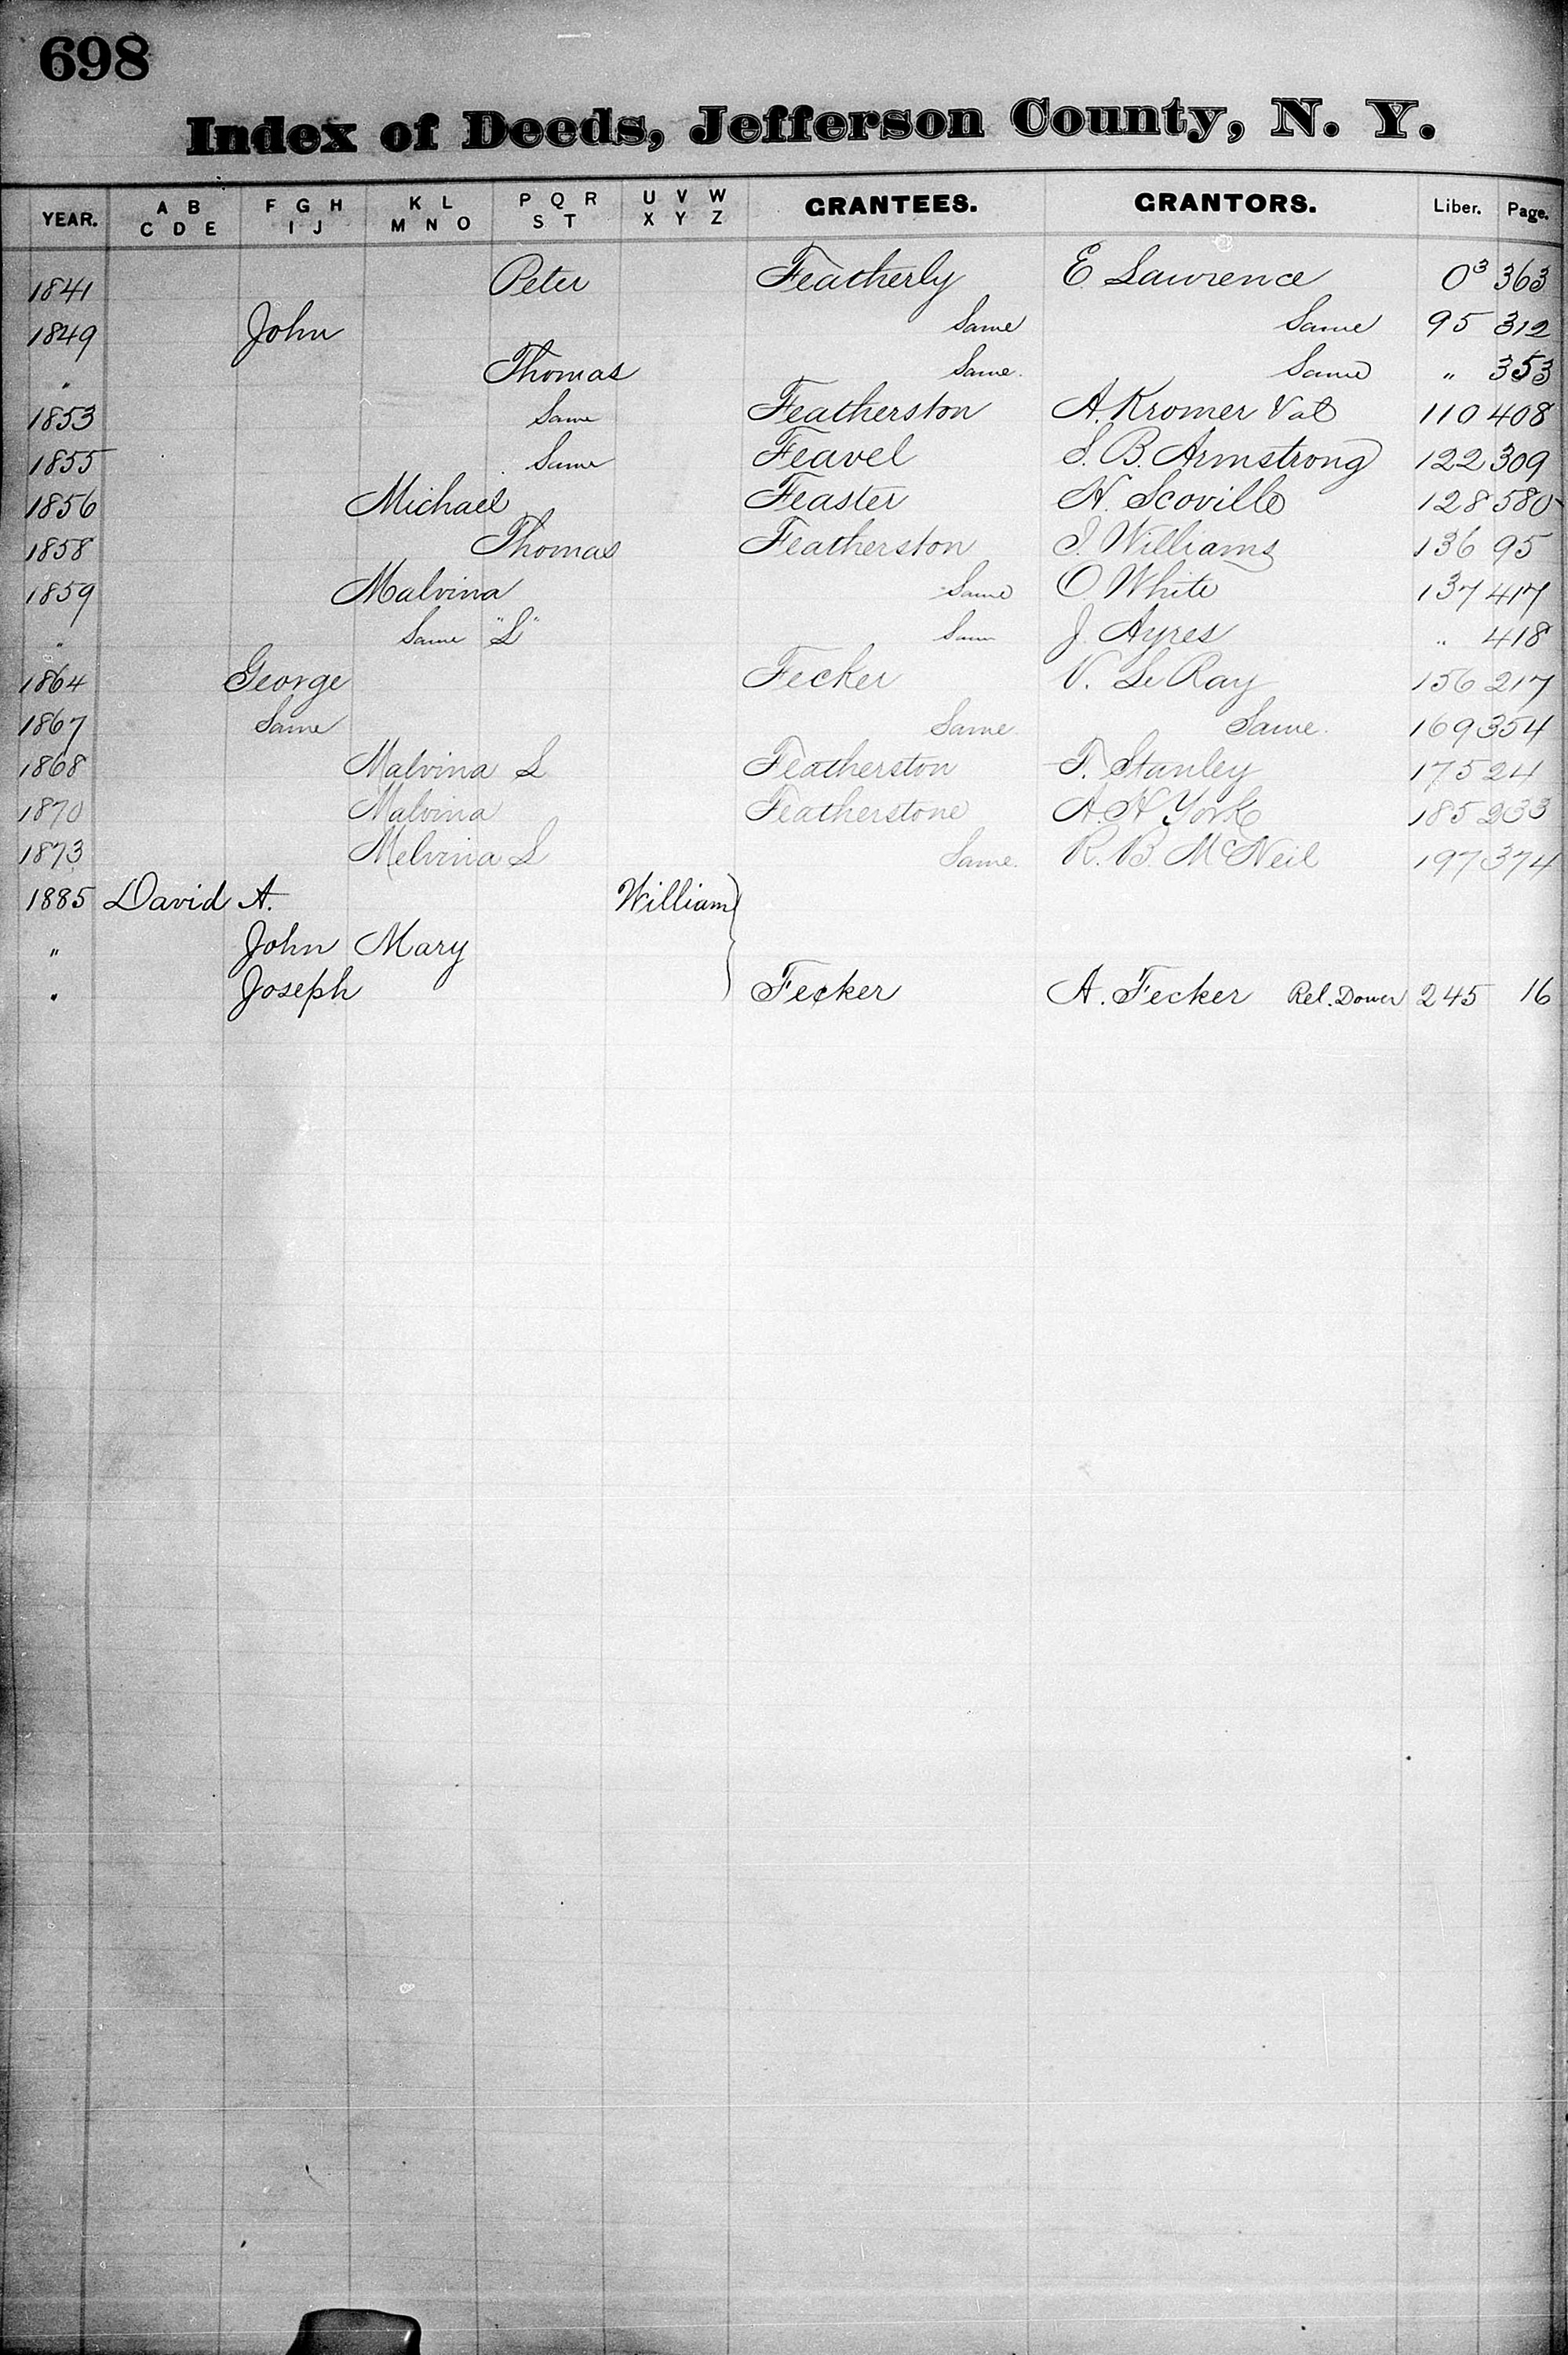 698
Index of Deeds, Jefferson County, N. Y.
YEAR. A B C D E F G H I J K L M N O P Q R S T U V W X Y Z GRANTEES. GRANTORS. Liber. Page.
1841 Peter Featherly E Lawrence O³ 363
1849 John Same Same 95 312
" Thomas Same. Same " 353
1853 Same Featherston A. Kromer & al 110 408
1855 Same Feavel S. B. Armstrong 122 309
1856 Michael Feaster H. Scoville 128 580
1858 Thomas Featherston I. Williams 136 95
1859 Malvina Same O. White 137 417
" Same "L" Same J. Ayres " 418
1864 George Fecker V. Le Ray 156 217
1867 Same Same. Same. 169 354
1868 Malvina L Featherston F. Stanley 175 24
1870 Malvina Featherstone A. H York 185 233
1873 Melvina L Same. R. B. McNeil 197 374
1885 David A. William
" John Mary
" Joseph Fecker A. Fecker Rel. Dower 245 16